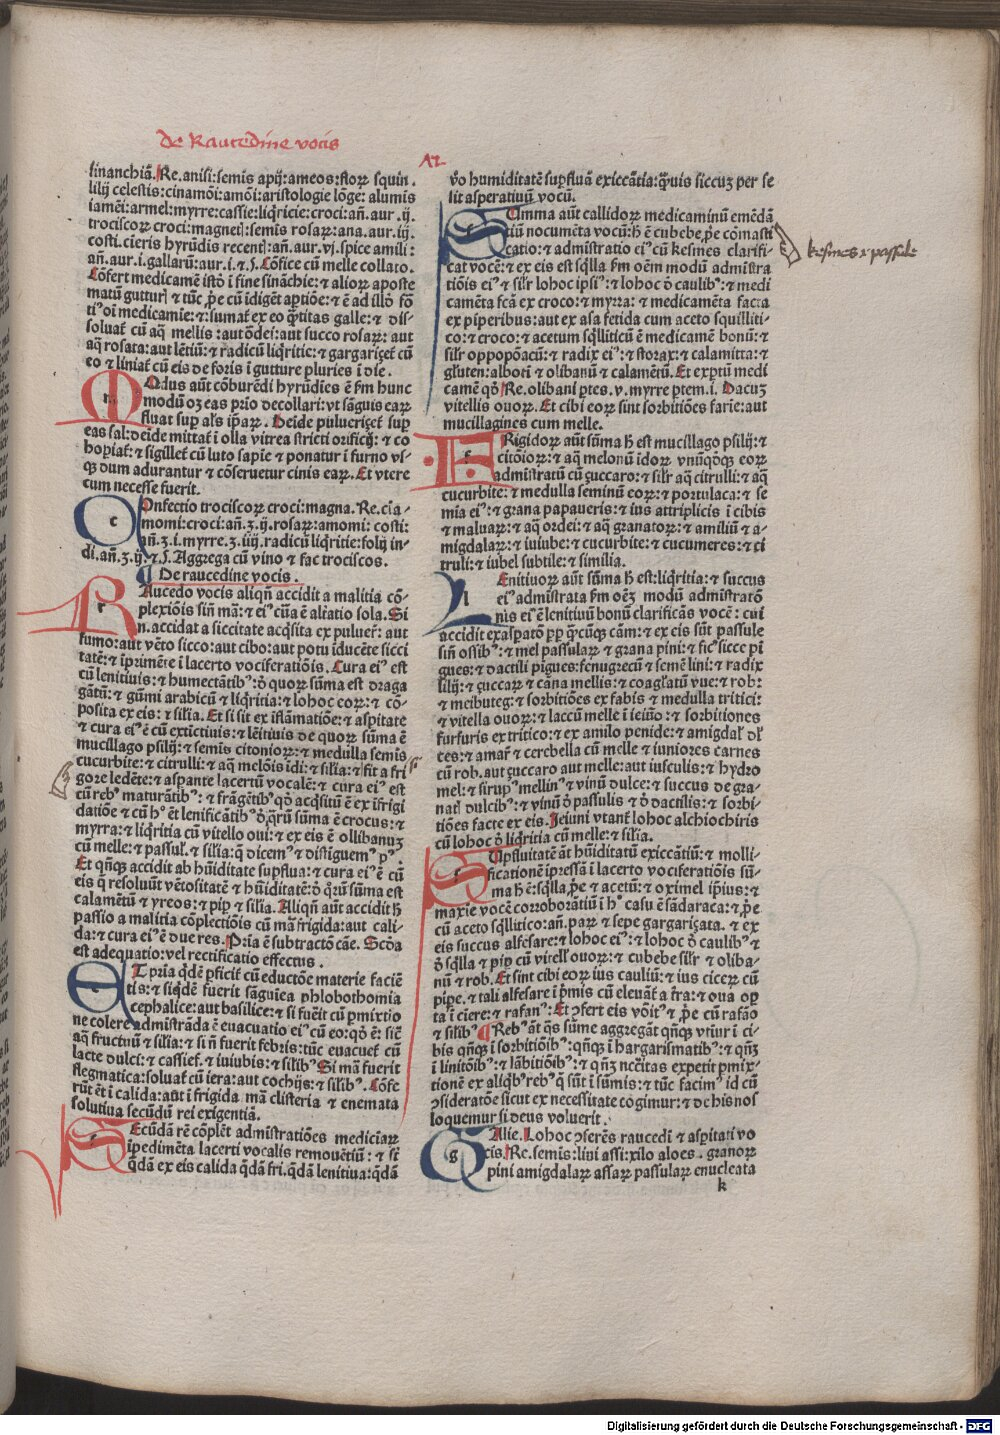 de Raucedine vocis
A2
sinanchiā. Re. anisi: semis apij: ameos: floꝝ squin.
lilij celestis: cinamōi: amōi: aristologie lōge: alumis
iamēi: armel: myrre: cassie: liq̄ricie: croci: añ. aur. ij.
trociscoꝝ croci: magnet: semis rosaꝝ: ana. aur. iij.
costi. cieris hyrūdis recent: añ. aur. vj. spice amili:
añ. aur. i. gallarū: aur. i. ⁊ .s. Cōfice cū melle collato.
Cōfert medicamē istō ī fine sināchie: ⁊ alioꝝ aposte
matū guttur ⁊ tūc
soluat cū aq̄ mellis: aut ōdei: aut succo rosaꝝ: aut
aq̄ rosata: aut lētiū: ⁊ radicū liq̄ritie: ⁊ gargariȝet cū
eo ⁊ liniat cū eis de foris ī gutture pluries ī die.
MOdus aūt cōburēdi hyrūdies ē ẜm hunc
modū oȝ eas prio decollari: vt sāguis eaꝝ
fluat sup Deide puluericet sup
eas sal: deide mittat ī olla vitrea stricti orificij: ⁊ co
hopiat: ⁊ sigillet cū luto sapie ⁊ ponatur ī furno vs
qȝ dum adurantur ⁊ cōseruetur cinis eaꝝ. Et vtere
cum necesse fuerit.
COnfectio trociscoꝝ croci: magna. Re. cīa-
momi: croci: añ. ʒ. ij. rosaꝝ: amomi: costi:
añ. ʒ. i. myrre. ʒ. iiij. radicū liq̄ritie: folij in-
di. añ. ʒ. ij. ⁊ .s. Aggrega cū vino ⁊ fac trociscos.
¶ De raucedine vocis.
RAucedo vocis aliqñ accidit a malitia cō-
plexiōis siñ mā: ⁊ eiꝰ cūa ē alēatio sola. Si
n. accidat a siccitate acq̄sita ex puluer: aut
fumo: aut vēto sicco: aut cibo: aut potu iducēte sicci
tatē: ⁊ īprimēte ī lacerto vociferatiōis. Cura eiꝰ est
cū lenitiuis: ⁊ humectātibꝰ: ꝺ quoꝝ sūma est draga
gātū: ⁊ gūmi arabicū ⁊ liq̄ritia: ⁊ lohoc eoꝝ: ⁊ cō-
posita ex eis: ⁊ silia. Et si sit ex īflāmatiōe: ⁊ aspitate
⁊ cura eiꝰ ē cū extictiuis: ⁊ lēitiuis de quoꝝ sūma ē
mucillago psilij: ⁊ semis citonioꝝ: ⁊ medulla semis
cucurbite: ⁊ citrulli: ⁊ aq̄ melōis īdi: ⁊ silia: ⁊ fit a fri
gore ledēte: ⁊ aspante lacertū vocalē: ⁊ cura eiꝰ est
cū rebꝰ maturātibꝰ: ⁊ frāgētibꝰ qð acq̄situ ē ex īfrigi
datiōe ⁊ cū hꝰ ēt lenificātibꝰ ꝺ q̄rū sūma ē crocus: ⁊
myrra: ⁊ liq̄ritia cū vitello oui: ⁊ ex eis ē ollibanuȝ
cū melle: ⁊ passul. ⁊ silia: q̄ dicemꝰ ⁊ distiguemꝰ pꝰ.
Et qñqȝ accidit ab hūiditate supflua: ⁊ cura eiꝰ ē cū
eis q̄ resoluūt vētositatē ⁊ hūiditatē: ꝺ q̄rū sūma est
calamētū ⁊ yreos: ⁊ pip ⁊ silia. Aliqñ aūt accidit h̄
passio a malitia cōplectiōis cū mā frigida: aut cali-
da: ⁊ cura eiꝰ ē due res. Pria ē subtractō cāe. Scōa
est adequatio: vel rectificatio effectus.
ET pria q̄dē pficit cū eductōe materie faciē
tis: ⁊ siq̄dē fuerit sāguica phlobothomia
cephalice: aut basilice: ⁊ si fuēit cū pmixtio
ne colere admistrāda ē euacuatio eiꝰ cū eo: qð ē: siē
aq̄ fructuū ⁊ silia: ⁊ si ñ fuerit febris: tūc euacuet cū
lacte dulci: ⁊ cassief. ⁊ iuiubis: ⁊ silibꝰ Si mā fuerit
flegmatica: soluat cū iera: aut cochijs: ⁊ silibꝰ. Cōfe
rūt ēt ī calida: aut ī frigida mā clisteria ⁊ enemata
solutiua secūdū rei exigentiā.
SEcūdā rē cōplēt admistratiōes mediciaꝝ
īpedimēta lacerti vocalis remouētiū: ⁊ st̄
q̄dā ex eis calida q̄dā fri. q̄dā lenitiua: q̄dā
ꝟo humiditatē supfluā exiccātia: q̄uis siccuȝ per se
sit asperatiuū vocū.
SOmma aūt callidoꝝ medicaminū emēdā
tiū nocumēta vocū: h̄ ē cubebe: ꝓe cōmasti
catio: ⁊ admistratio eiꝰ cū kesmes clarifi-
cat vocē: ⁊ ex eis est sq̄lla ẜm oēm modū admistra
tiōis eiꝰ ⁊ silr lohoc ipsiꝰ: ⁊ lohoc ꝺ caulibꝰ: ⁊ medi
camēta fcā ex croco: ⁊ myrra: ⁊ medicamēta facta
ex piperibus: aut ex asa fetida cum aceto squilliti-
co: ⁊ croco: ⁊ acetum sq̄lliticū ē medicamē bonū: ⁊
silr oppopōacū: ⁊ radix eiꝰ: ⁊ storax: ⁊ calamitta: ⁊
gluten: alboti ⁊ olibanū ⁊ calamētū. Et exptū medi
camē qð Re. olibani ptes. v. myrre ptem. i. Dacuȝ
vitellis ouoꝝ. Et cibi eoꝝ sint sorbitiōes farie: aut
mucillagines cum melle.
FRigidoꝝ aūt sūma h̄ est mucillago psilij: ⁊
citōioꝝ: ⁊ aq̄ melonū idoꝝ vnūqōqȝ eoꝝ
admistratū cū ȝuccaro: ⁊ silr aq̄ citrulli: ⁊ aq̄
cucurbite: ⁊ medulla seminū eoꝝ: ⁊ portulaca: ⁊ se
mia eiꝰ: ⁊ grana papaueris: ⁊ ius attriplicis ī cibis
⁊ maluaꝝ: ⁊ aq̄ ordei: ⁊ aq̄ granatoꝝ: ⁊ amiliū ⁊ a-
migdalaꝝ: ⁊ iuiube: ⁊ cucurbite: ⁊ cucumeres: ⁊ ci
truli: ⁊ iubel subtile: ⁊ similia.
LEnitiuoꝝ aūt sūma h̄ est: liq̄ritia: ⁊ succus
eiꝰ admistrata ẜm oēȝ modū admistratō
nis eiꝰ ē lenitiuū bonū clarificās vocē: cui
accidit exaspatō cām: ⁊ ex eis sūt passule
siñ ossibꝰ: ⁊ mel passulaꝝ ⁊ grana pini: ⁊ ficꝰ sicce pī
gues: ⁊ dactili pigues: fenugrecū ⁊ semē lini: ⁊ radix
lilij: ⁊ ȝuccaꝝ ⁊ cāna mellis: ⁊ coaglatū vue: ⁊ rob:
⁊ meibuteg: ⁊ sorbitiōes ex fabis ⁊ medulla tritici:
⁊ vitella ouoꝝ: ⁊ lac cū melle ī ieiūo: ⁊ sorbitiones
furfuris ex tritico: ⁊ ex amilo penide: ⁊ amigdal dl
ces: ⁊ amar ⁊ cerebella cū melle ⁊ iuniores carnes
cū rob. aut ȝuccaro aut melle: aut iusculis: ⁊ hydro
mel: ⁊ sirupꝰ mellinꝰ ⁊ vinū dulce: ⁊ succus de gra-
nat dulcibꝰ: ⁊ vinū ꝺ passulis ⁊ ꝺ dactilis: ⁊ sorbi-
tiōes facte ex eis. Jeiuni vtant lohoc alchiochiris
cū lohoc ꝺ liq̄ritia cū melle: ⁊ silia.
SUpfluitatē āt hūiditatū exiccātiū: ⁊ molli-
ficationē ipressā ī lacerto vociferatiōis sū-
ma h̄ ē: sq̄lla, ꝓe ⁊ acetū: ⁊ oximel ipius: ⁊
maxie vocē corroborātiū ī hꝰ casu ē sādaraca: ⁊ ꝓe
cū aceto sq̄llitico: añ. paꝝ ⁊ sepe gargariȝata. ⁊ ex
eis succus alfesare: ⁊ lohoc eiꝰ: ⁊ lohoc ꝺ caulibꝰ ⁊
ꝺ sq̄lla ⁊ pip cū vitell ouoꝝ: ⁊ cubebe silr ⁊ oliba-
nū ⁊ rob. Et sint cibi eoꝝ ius cauliū: ⁊ ius ciceꝝ cū
pipe. ⁊ tali alfesare ī pmis cū eleuat a fra: ⁊ oua op
ta ī ciere: ⁊ rafanꝰ: Et ꝯfert eis vōitꝰ ⁊ ꝓe cū rafāo
⁊ silibꝰ ¶ Rebꝰ āt q̄s sūme aggregāt qñqȝ vtiur ī ci-
bis qñqȝ ī sorbitiōibꝰ: qñqȝ ī hargarismatibꝰ: ⁊ qñȝ
ī linitōibꝰ: ⁊ lābitiōibꝰ: ⁊ qñȝ nccitas expetit pmix-
tionē ex aliq̄bꝰ rebꝰ q̄ sūt ī sūmis: ⁊ tūc facimꝰ id cū
ꝯsideratōe sicut ex necessitate cogimur: ⁊ de his nos
loquemur si deus voluerit.
GAlie. Lohoc ꝯferēs raucedi ⁊ aspitati vo
cis. Re. semis: lini assi: xilo aloes. granoꝝ
pini amigdalaꝝ assaꝝ passulaꝝ enucleata
k
kesmes ⁊ passule
Digitalisierung gefördert durch die Deutsche Forschungsgemeinschaft - DFG